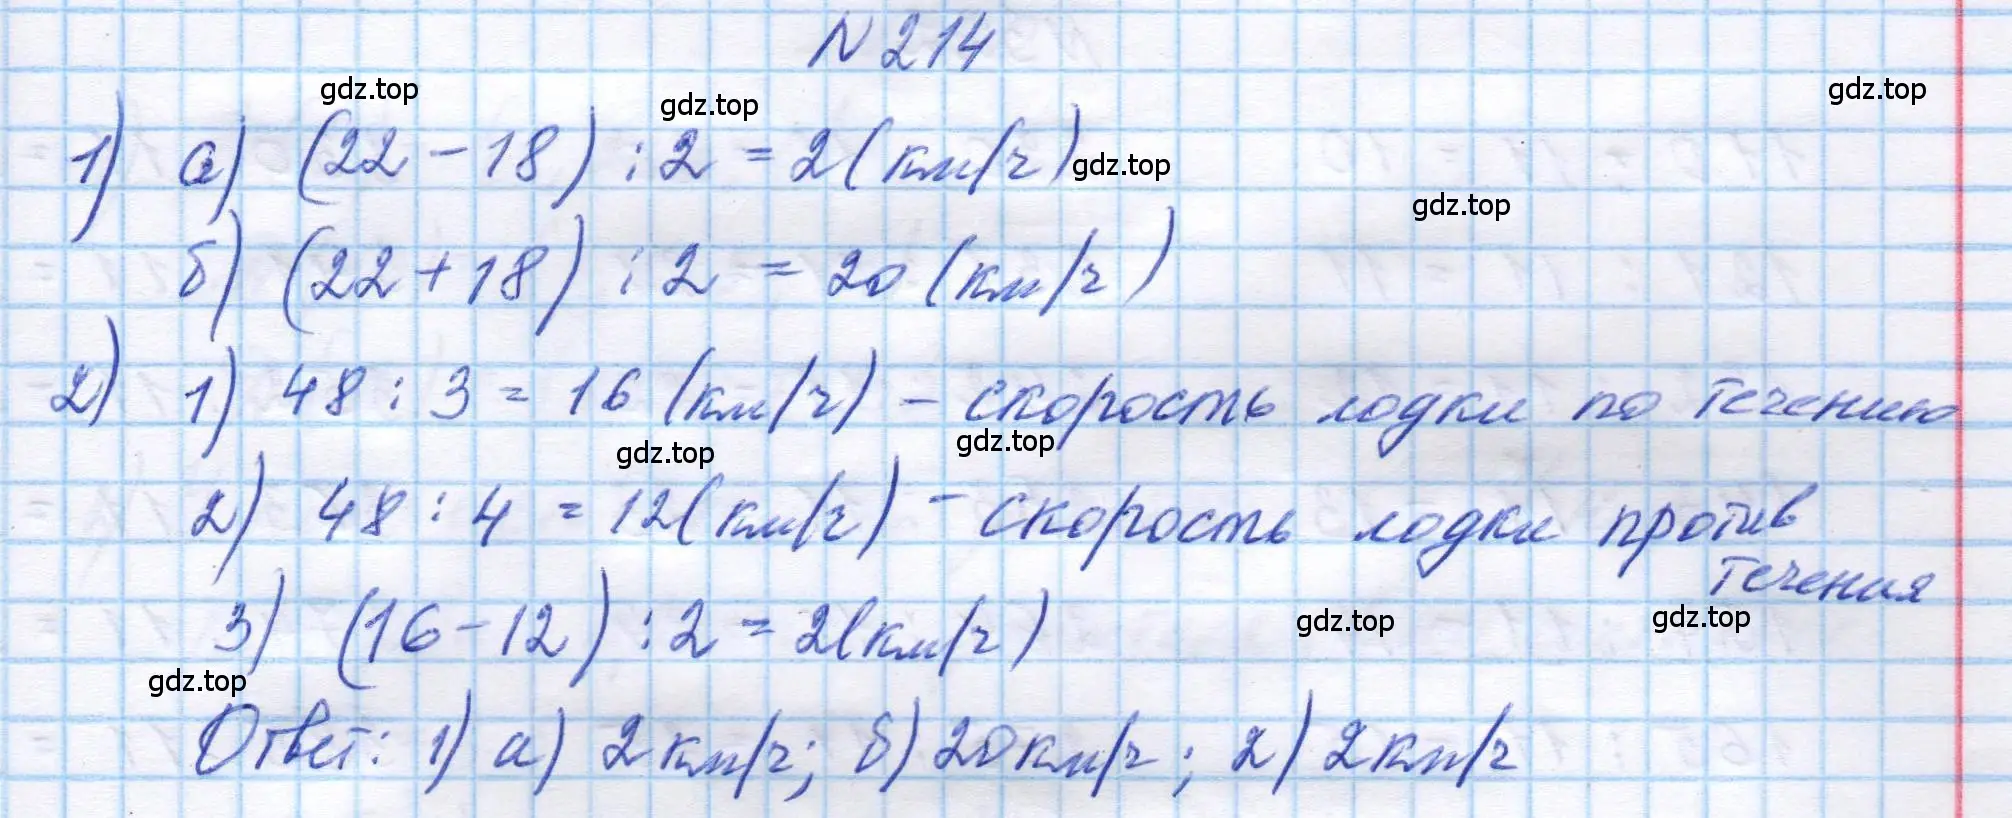 N 214
gdz.top gdz.top gdz.top
1) а) (22 - 18) : 2 = 2 (км/ч) gdz.top
gdz.top
б) (22 + 18) : 2 = 20 (км/ч)
2) 1) 48 : 3 = 16 (км/ч) - скорость лодки по течению
gdz.top gdz.top
2) 48 : 4 = 12 (км/ч) - скорость лодки против
течения
3) (16 - 12) : 2 = 2 (км/ч)
gdz.top gdz.top
gdz.top
Ответ: 1) а) 2 км/ч; б) 20 км/ч; 2) 2 км/ч